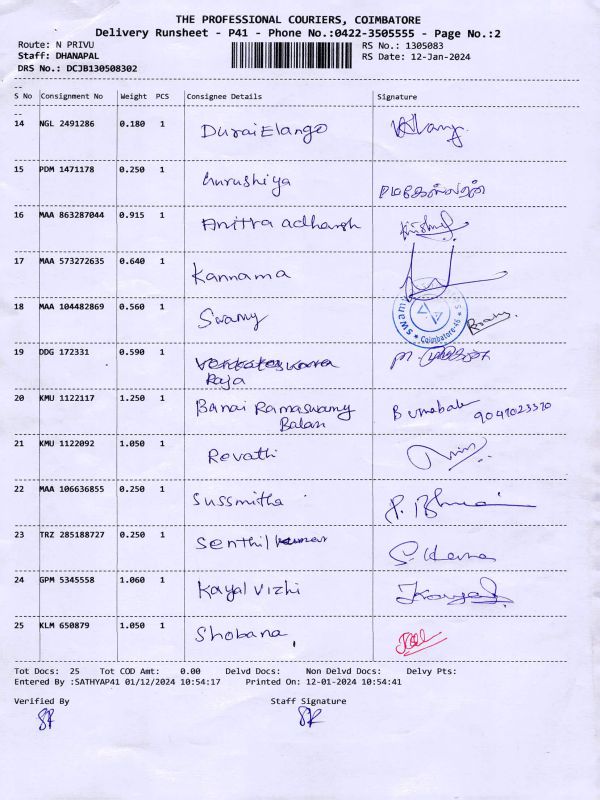 THE PROFESSIONAL COURIERS, COIMBATORE
Delivery Runsheet - P41 - Phone No.:0422-3505555 - Page No.:2
Route: N PRIVU RS No.: 1305083
Staff: DHANAPAL RS Date: 12-Jan-2024
DRS No.: DCJB130508302
S No Consignment No Weight PCS Consignee Details Signature
14 NGL 2491286 0.180 1 Durai Elango
15 PDM 1471178 0.250 1 Gurushiya
16 MAA 863287044 0.915 1 Anitra adharsh
17 MAA 573272635 0.640 1 Kannama
18 MAA 104482869 0.560 1 Swamy
Coimbatore-46
19 DDG 172331 0.590 1 Venkateswara
Raja
20 KMU 1122117 1.250 1 Banai Ramaswamy B umabala 9047023370
Balan
21 KMU 1122092 1.050 1 Revathi
22 MAA 106636855 0.250 1 Sussmitha
23 TRZ 285188727 0.250 1 Senthil kumar
24 GPM 5345558 1.060 1 Kayal vizhi
25 KLM 650879 1.050 1 Shobana
Tot Docs: 25 Tot COD Amt: 0.00 Delvd Docs: Non Delvd Docs: Delvy Pts:
Entered By :SATHYAP41 01/12/2024 10:54:17 Printed On: 12-01-2024 10:54:41
Verified By Staff Signature